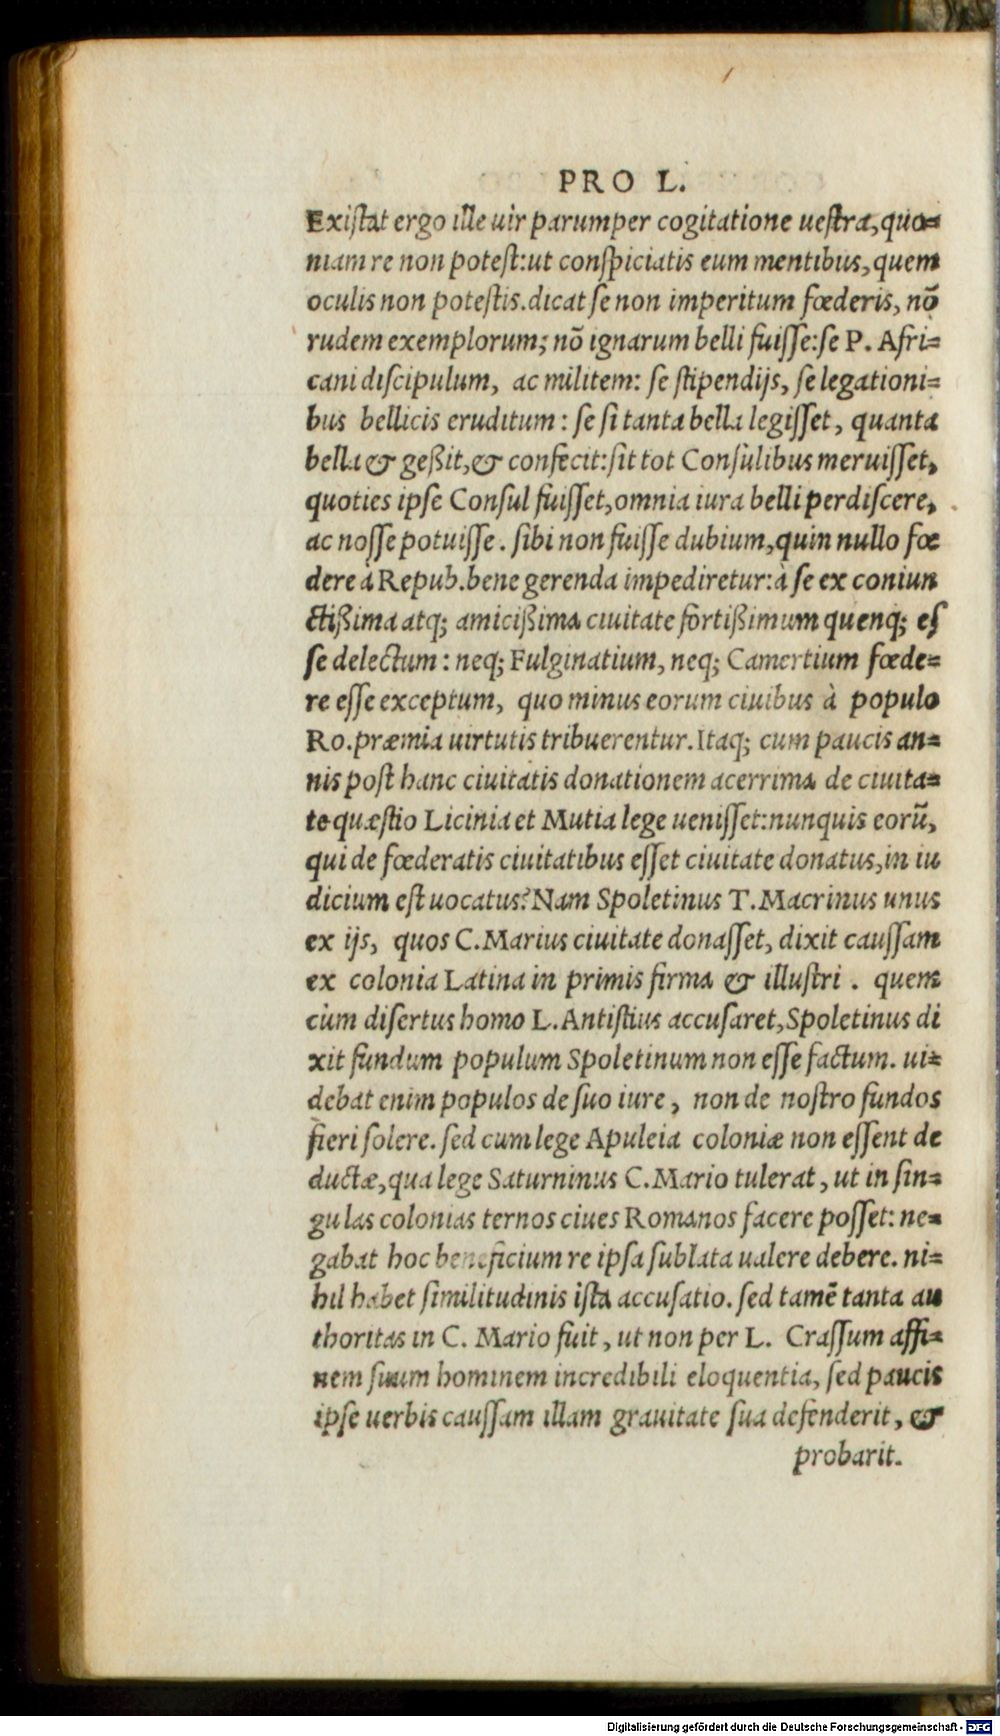 PRO L.
Existat ergo ille uir parumper cogitatione uestra, quo=
niam re non potest: ut conspiciatis eum mentibus, quem
oculis non potestis. dicat se non imperitum fœderis, nō
rudem exemplorum; nō ignarum belli fuisse: se P. Afri=
cani discipulum, ac militem: se stipendijs, se legationi=
bus bellicis eruditum: se si tanta bella legisset, quanta
bella & geßit, & confecit: sit tot Consulibus meruisset,
quoties ipse Consul fuisset, omnia iura belli perdiscere,
ac nosse potuisse. sibi non fuisse dubium, quin nullo fœ
dere à Repub. bene gerenda impediretur: à se ex coniun
ctißima atq; amicißima ciuitate fortißimum quenq; es
se delectum: neq; Fulginatium, neq; Camertium fœde=
re esse exceptum, quo minus eorum ciuibus à populo
Ro. præmia uirtutis tribuerentur. Itaq; cum paucis an=
nis post hanc ciuitatis donationem acerrima de ciuita=
te quæstio Licinia et Mutia lege uenisset: nunquis eorū,
qui de fœderatis ciuitatibus esset ciuitate donatus, in iu
dicium est uocatus? Nam Spoletinus T. Macrinus unus
ex ijs, quos C. Marius ciuitate donasset, dixit caussam
ex colonia Latina in primis firma & illustri. quem
cùm disertus homo L. Antistius accusaret, Spoletinus di
xit fundum populum Spoletinum non esse factum. ui=
debat enim populos de suo iure, non de nostro fundos
fieri solere. sed cum lege Apuleia coloniæ non essent de
ductæ, qua lege Saturninus C. Mario tulerat, ut in sin=
gulas colonias ternos ciues Romanos facere posset: ne=
gabat hoc beneficium re ipsa sublata ualere debere. ni=
hil habet similitudinis ista accusatio. sed tamē tanta au
thoritas in C. Mario fuit, ut non per L. Crassum affi=
nem suum hominem incredibili eloquentia, sed paucis
ipse uerbis caussam illam grauitate sua defenderit, &
probarit.
Digitalisierung gefördert durch die Deutsche Forschungsgemeinschaft - DFG